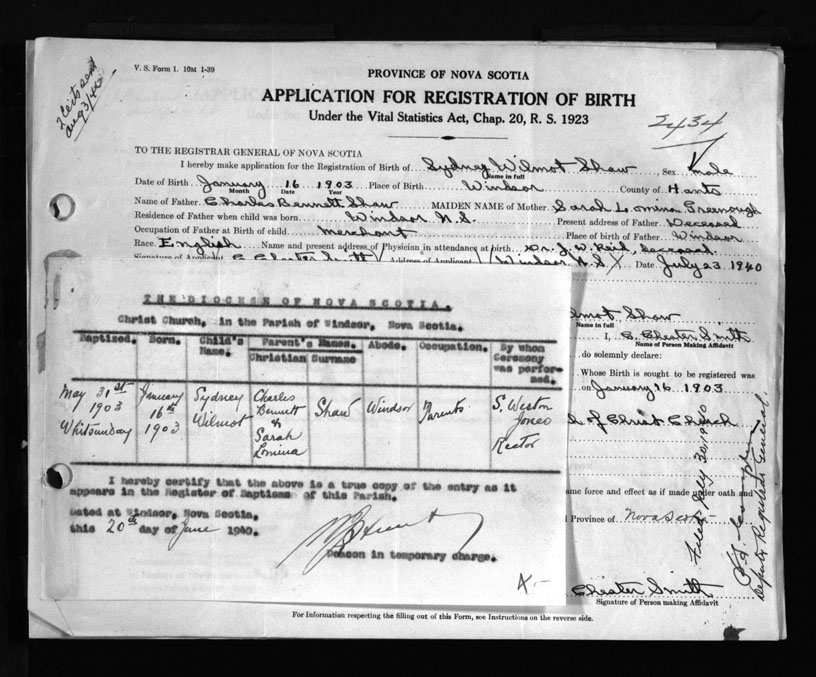 2 Certs sent
Aug 3/40
V. S. Form 1. 10M 1-39
PROVINCE OF NOVA SCOTIA
APPLICATION FOR REGISTRATION OF BIRTH
Under the Vital Statistics Act, Chap. 20, R. S. 1923
2434
TO THE REGISTRAR GENERAL OF NOVA SCOTIA
I hereby make application for the Registration of Birth of Sydney Wilmot Shaw, Sex male
Name in full
Date of Birth January 16 1903 Place of Birth Windsor County of Hants
Month Date Year
Name of Father Charles Bennett Shaw MAIDEN NAME of Mother Sarah Lomina Greenough
Residence of Father when child was born Windsor N.S. Present address of Father Deceased
Occupation of Father at Birth of child merchant Place of birth of Father Windsor
Race English Name and present address of Physician in attendance at birth Dr. J. W. Reid, Deceased
Signature of Applicant E. Chester Smith Address of Applicant Windsor N.S. Date July 23 1940
THE DIOCESE OF NOVA SCOTIA.
Christ Church, in the Parish of Windsor, Nova Scotia.
Baptized. Born. Child's Name. Parent's Names. Christian Surname Abode. Occupation. By whom Ceremony was performed.
May 31st 1903 Whitsunday January 16th 1903 Sydney Wilmot Charles Bennett & Sarah Lomina Shaw Windsor Parents S. Weston Jones Rector
I hereby certify that the above is a true copy of the entry as it
appears in the Register of Baptisms of this Parish.
Dated at Windsor, Nova Scotia.
this 20th day of June 1940.
Deacon in temporary charge.
lmot Shaw
Name in full
I, E. Chester Smith
Name of Person Making Affidavit
do solemnly declare:
Whose Birth is sought to be registered was
on January 16 1903
of Christ Church
ame force and effect as if made under oath and
Province of Nova Scotia
Filed July 30, 1940
Deputy Registrar General
Chester Smith
Signature of Person making Affidavit
For Information respecting the filling out of this Form, see Instructions on the reverse side.